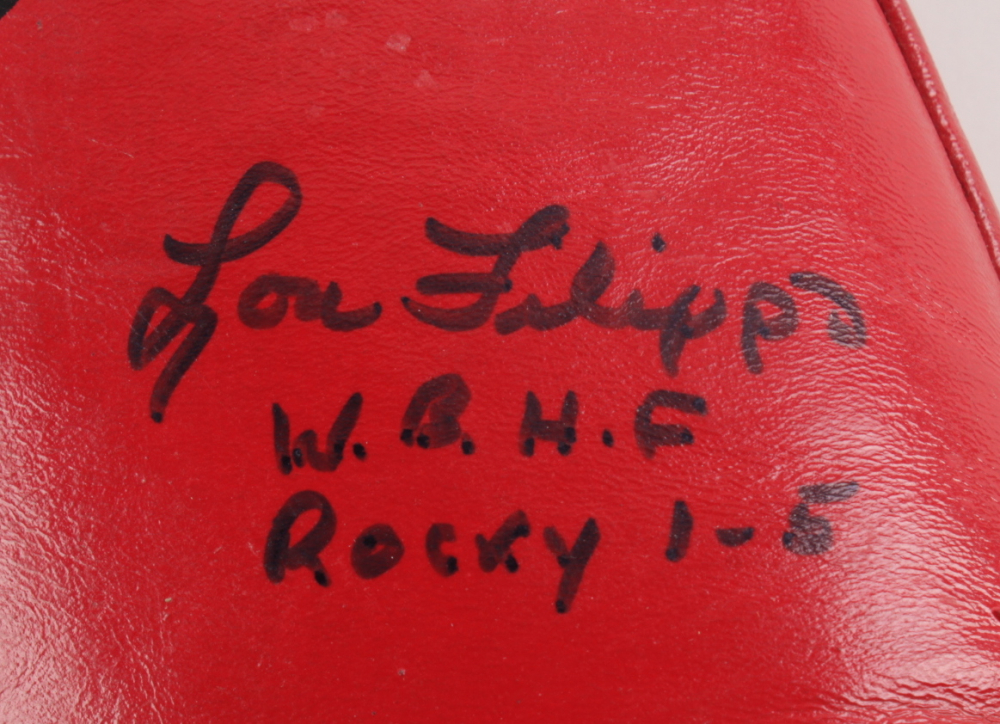 Lou Filippo
W.B.H.F
Rocky 1-5